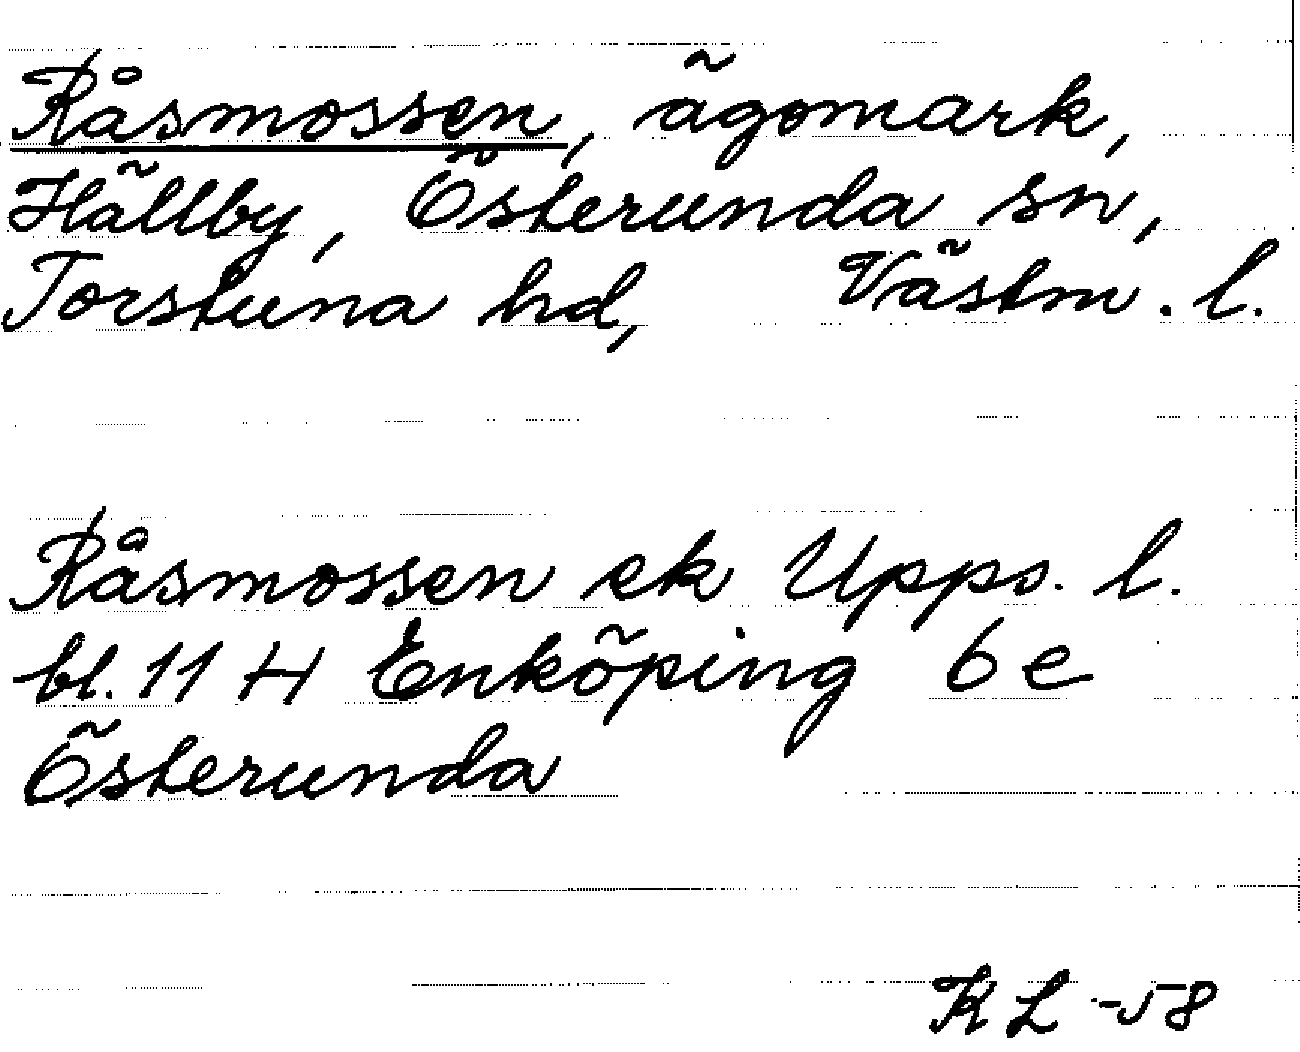 Råsmossen, ägomark,
Hällby, Österunda sn,
Torstuna hd, Västm. l.
Råsmossen ek Upps. l.
bl. 11 H Enköping 6 e
Österunda
K L -58